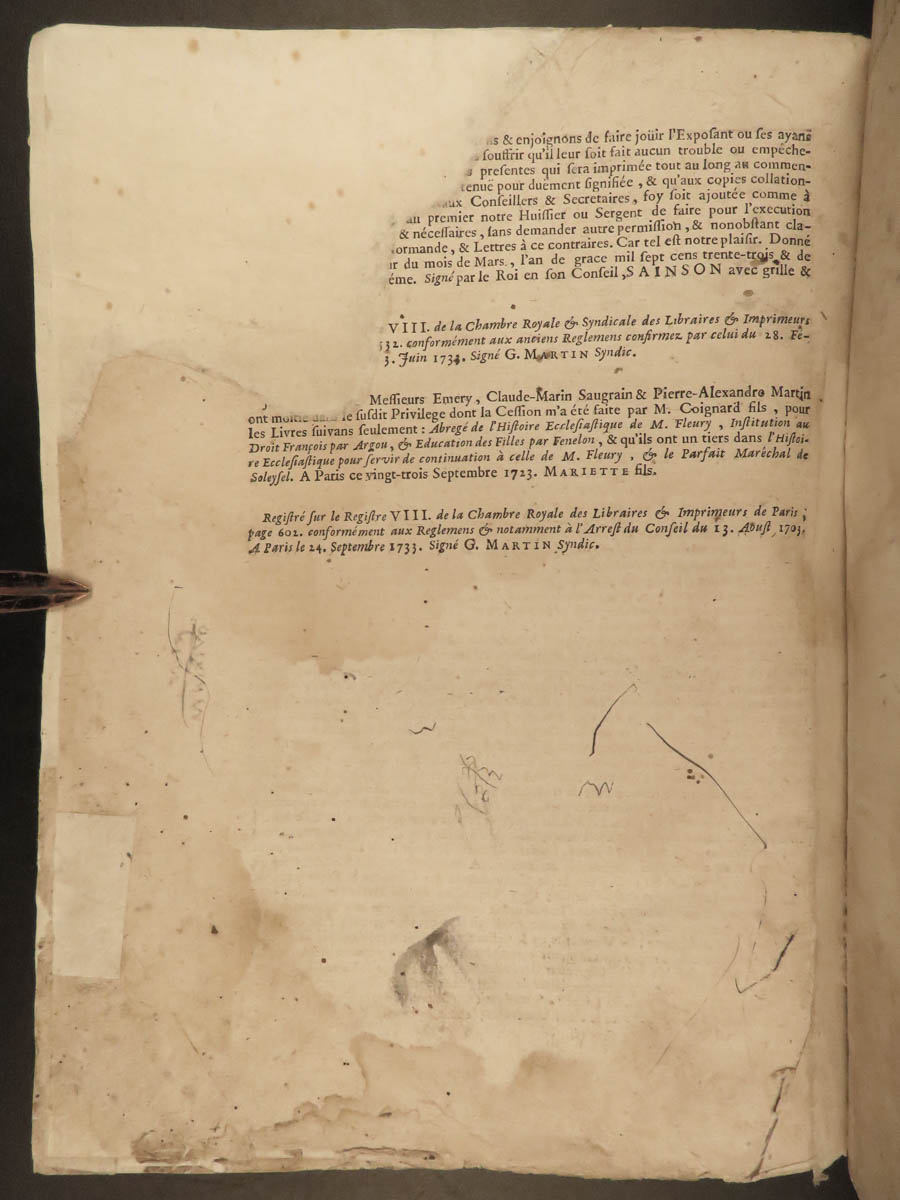 & enjoignons de faire joüir l'Exposant ou ses ayans
souffrir qu'il leur soit fait aucun trouble ou empêche-
presentes qui sera imprimée tout au long au commen-
tenuë pour duëment signifiée, & qu'aux copies collation-
aux Conseillers & Secretaires, foy soit ajoutée comme à
au premier notre Huissier ou Sergent de faire pour l'execution
& nécessaires, sans demander autre permission, & nonobstant cla-
ormande, & Lettres à ce contraires. Car tel est notre plaisir. Donné
r du mois de Mars, l'an de grace mil sept cens trente-trois, & de
éme. Signé par le Roi en son Conseil, SAINSON avec grille &
VIII. de la Chambre Royale & Syndicale des Libraires & Imprimeurs
532. conformément aux anciens Reglemens confirmez par celui du 28. Fe-
3. Juin 1734. Signé G. MARTIN Syndic.
Messieurs Emery, Claude-Marin Saugrain & Pierre-Alexandre Martin
ont moitié dans le susdit Privilege dont la Cession m'a été faite par M. Coignard fils, pour
les Livres suivans seulement : Abregé de l'Histoire Ecclesiastique de M. Fleury, Institution au
Droit François par Argou, & Education des Filles par Fenelon, & qu'ils ont un tiers dans l'Histoi-
re Ecclesiastique pour servir de continuation à celle de M. Fleury, & le Parfait Maréchal de
Soleysel. A Paris ce vingt-trois Septembre 1723. MARIETTE fils.
Registré sur le Registre VIII. de la Chambre Royale des Libraires & Imprimeurs de Paris ;
page 602. conformément aux Reglemens & notamment à l'Arrest du Conseil du 13. Aoust 1703.
A Paris le 24. Septembre 1733. Signé G. MARTIN Syndic.